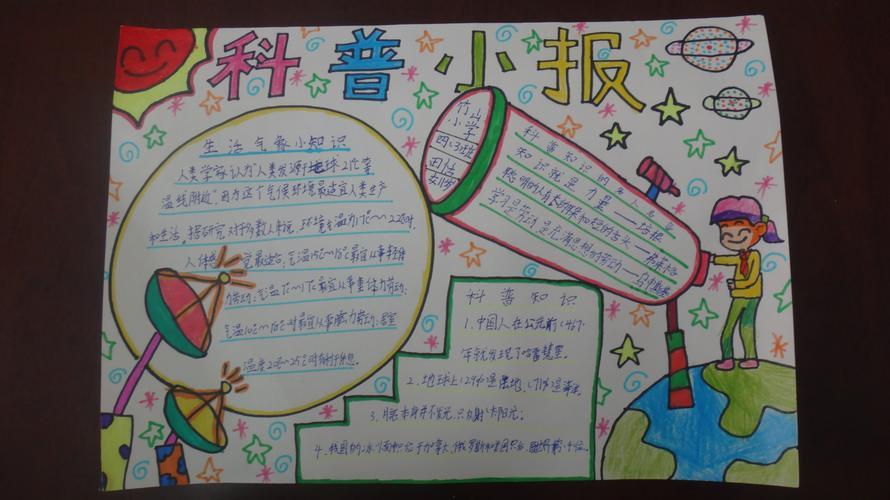 科普小报
生活气象小知识
人类学家认为"人类发源于地球21℃等
温线附近"因为这个气候环境最适宜人类生产
和生活。据研究对于多数人来说,环境气温为17℃~22℃时,
人体感觉最适合,气温15℃~18℃最宜从事轻体
力劳动;气温7℃~17℃最宜从事重体力劳动;
气温10℃~18℃时最宜从事脑力劳动;居室
温度2℃~25℃时有利于休息。
竹山
小学
四(3)班
田恬
女11岁
科普知识的名人名言
知识就是力量——培根
聪明的人有长的耳朵和短的舌头——弗莱格
学习是劳动,是充满思想的劳动——乌申斯基
科普知识
1.中国人在公元前
年就发现了哈雷彗星。
2.地球上(29%)是陆地,(71%)是海洋
3.月球本身并不发光,只反射太阳光。
4.我国的冰川面积位于加拿大,俄罗斯和美国之后,